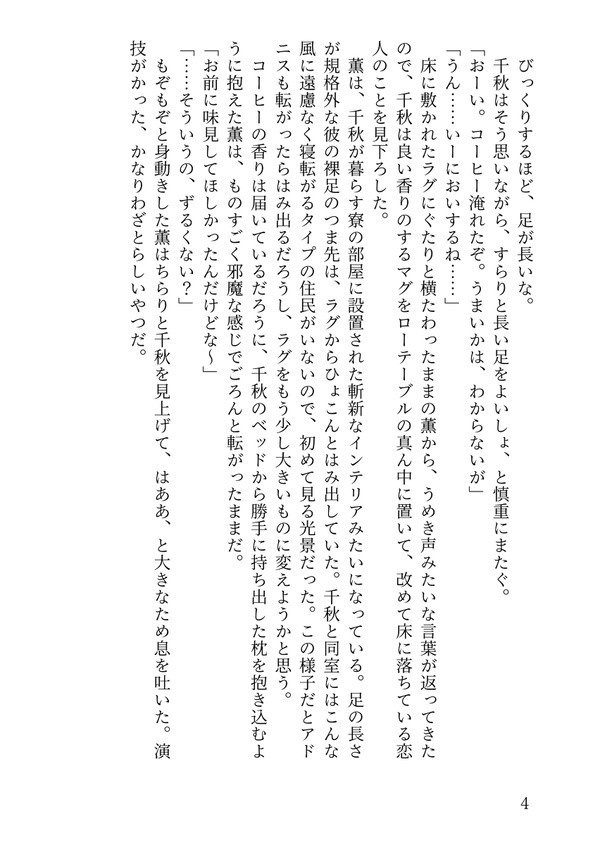 びっくりするほど、足が長いな。
千秋はそう思いながら、すらりと長い足をよいしょ、と慎重にまたぐ。
「おーい。コーヒー淹れたぞ。うまいかは、わからないが」
「うん……いーにおいするね……」
床に敷かれたラグにぐたりと横たわったままの薫から、うめき声みたいな言葉が返ってきた
ので、千秋は良い香りのするマグをローテーブルの真ん中に置いて、改めて床に落ちている恋
人のことを見下ろした。
薫は、千秋が暮らす寮の部屋に設置された斬新なインテリアみたいになっている。足の長さ
が規格外な彼の裸足のつま先は、ラグからひょこんとはみ出していた。千秋と同室にはこんな
風に遠慮なく寝転がるタイプの住民がいないので、初めて見る光景だった。この様子だとアド
ニスも転がったらはみ出るだろうし、ラグをもう少し大きいものに変えようかと思う。
コーヒーの香りは届いているだろうに、千秋のベッドから勝手に持ち出した枕を抱き込むよ
うに抱えた薫は、ものすごく邪魔な感じでごろんと転がったままだ。
「お前に味見してほしかったんだけどな〜」
「……そういうの、ずるくない？」
もぞもぞと身動きした薫はちらりと千秋を見上げて、はああ、と大きなため息を吐いた。演
技がかった、かなりわざとらしいやつだ。
4